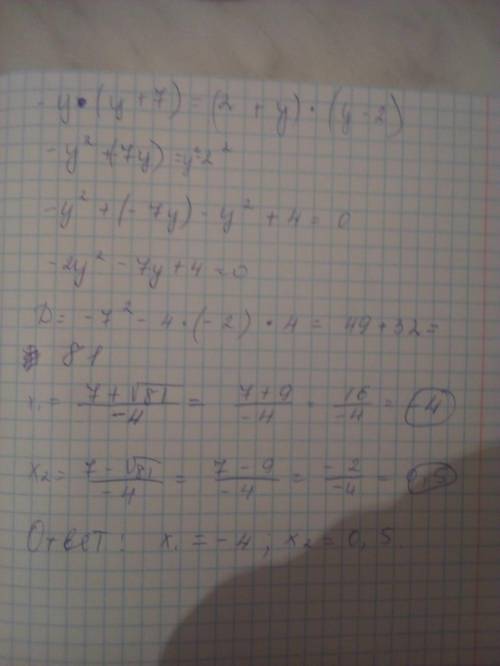 - y · (y + 7) = (2 + y) · (y - 2)
- y² + (-7y) = y² - 2²
- y² + (- 7y) - y² + 4 = 0
- 2y² - 7y + 4 = 0
D = -7² - 4 · (- 2) · 4 = 49 + 32 =
81
x₁ = (7 + √81)/(-4) = (7 + 9)/(-4) = 16/(-4) = -4
x₂ = (7 - √81)/(-4) = (7 - 9)/(-4) = (-2)/(-4) = 0,5
Ответ: x₁ = - 4 ; x₂ = 0,5